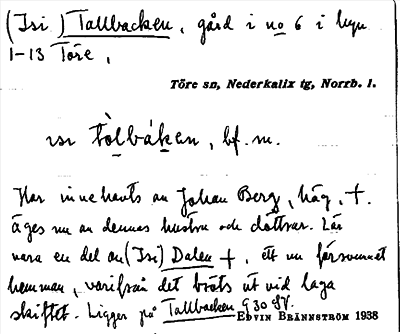 (Isi) Tallbacken, gård i no 6 i byn
1-13 Töre,
Töre sn, Nederkalix tg, Norrb. l.
ısı tòlbáken, bf. m.
Har innehafts av Johan Berg, häg, †.
Äges nu av dennas hustru och döttrar. Lär
vara en del av (Isi) Dalen +, ett nu försvunnet
hemman, varifrån det bröts ut vid laga
skiftet. Ligger på Tallbacken 930 SV.
EDVIN BRÄNNSTRÖM 1938